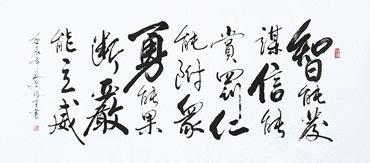 智能發
謀信能
賞罰仁
能附眾
勇能果
斷嚴
能立威